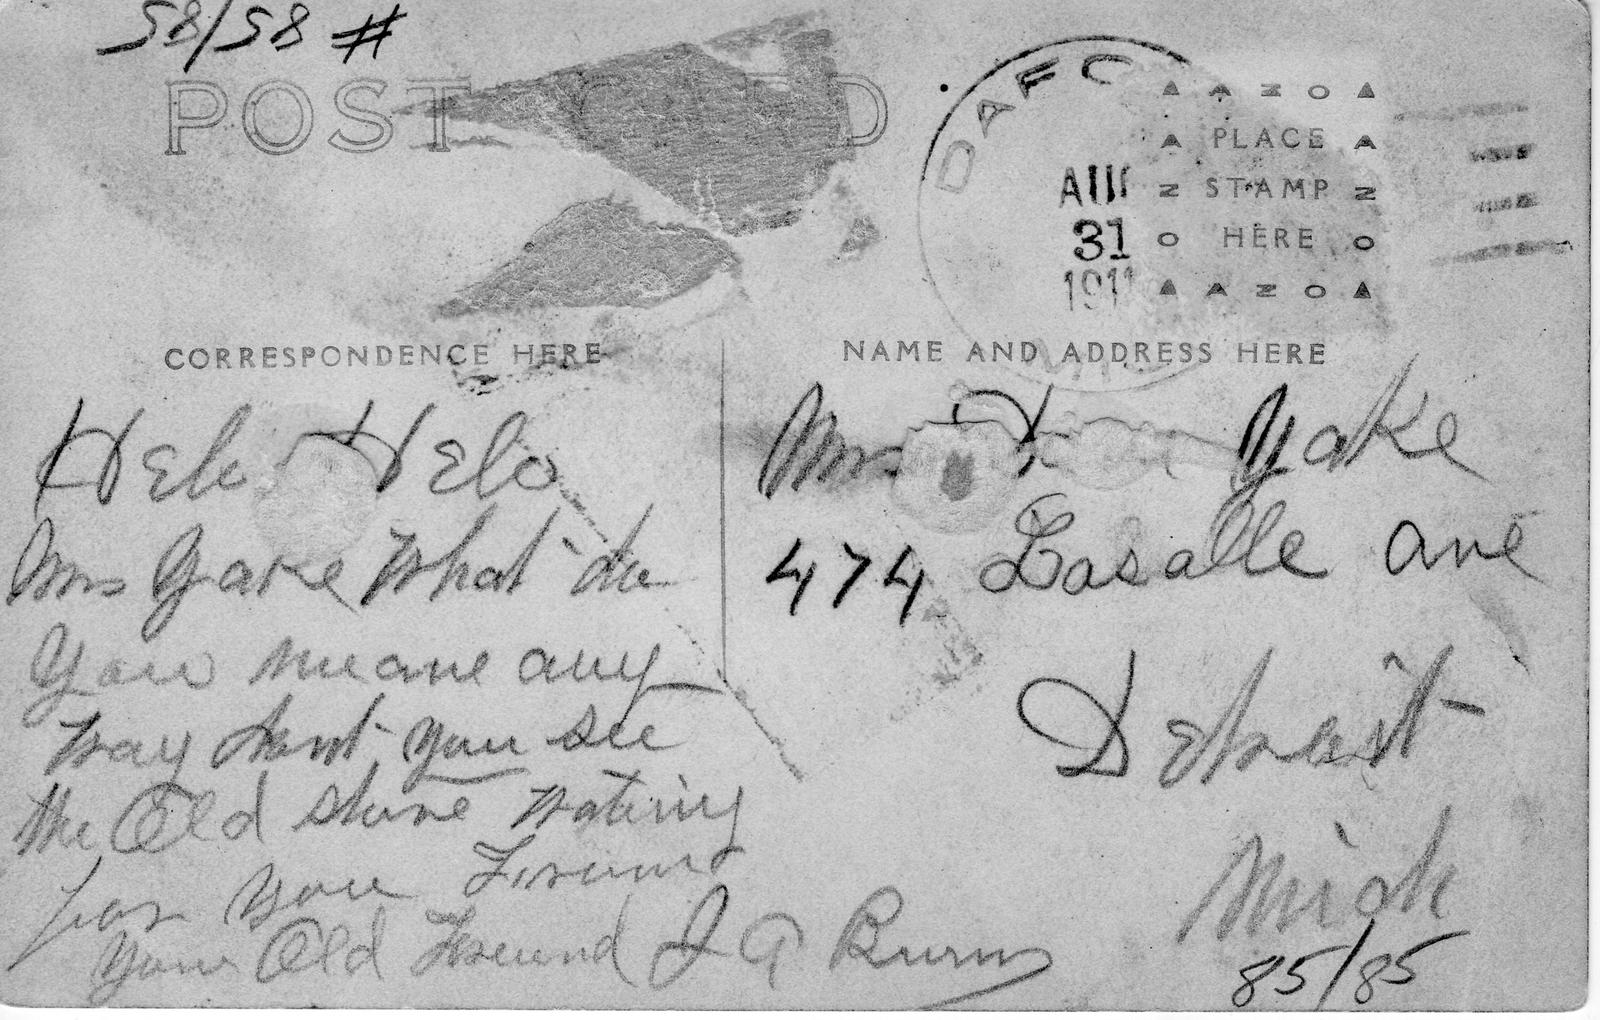 58/58 #
POST CARD
DAFC
AUG
31
1911
AZOA
PLACE
STAMP
HERE
AZOA
CORRESPONDENCE HERE
NAME AND ADDRESS HERE
Helo Helo
Mrs Yake What do
you meane any
way dont you see
the Old stove wating
for you
Your Old Freund J A Burns
Mrs Yake
474 Lasalle ave
Detroit
Mich
85/85